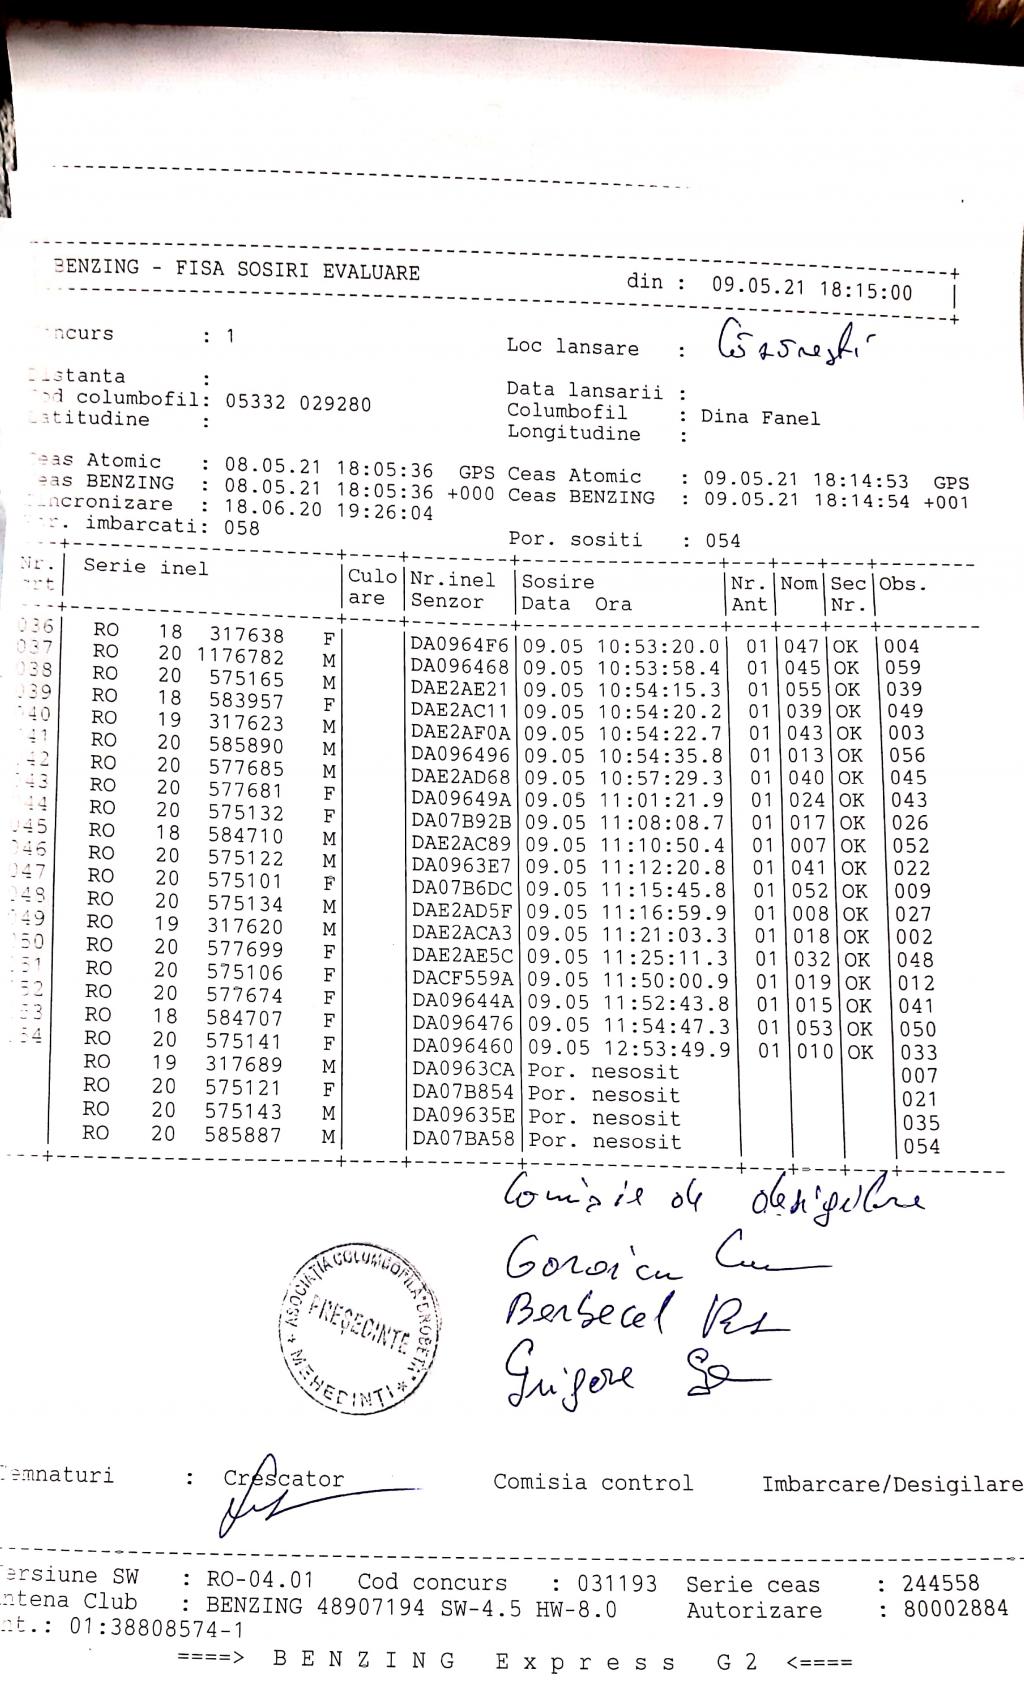 BENZING - FISA SOSIRI EVALUARE din : 09.05.21 18:15:00
ncurs : 1 Loc lansare :
Distanta : Data lansarii :
Cod columbofil: 05332 029280 Columbofil : Dina Fanel
Latitudine : Longitudine :
Ceas Atomic : 08.05.21 18:05:36 GPS Ceas Atomic : 09.05.21 18:14:53 GPS
eas BENZING : 08.05.21 18:05:36 +000 Ceas BENZING : 09.05.21 18:14:54 +001
Sincronizare : 18.06.20 19:26:04
Por. imbarcati: 058 Por. sositi : 054
Nr. Serie inel Culo Nr.inel Sosire Nr. Nom Sec Obs.
crt are Senzor Data Ora Ant Nr.
036 RO 18 317638 F DA0964F6 09.05 10:53:20.0 01 047 OK 004
037 RO 20 1176782 M DA096468 09.05 10:53:58.4 01 045 OK 059
038 RO 20 575165 M DAE2AE21 09.05 10:54:15.3 01 055 OK 039
039 RO 18 583957 F DAE2AC11 09.05 10:54:20.2 01 039 OK 049
040 RO 19 317623 M DAE2AF0A 09.05 10:54:22.7 01 043 OK 003
41 RO 20 585890 M DA096496 09.05 10:54:35.8 01 013 OK 056
42 RO 20 577685 M DAE2AD68 09.05 10:57:29.3 01 040 OK 045
43 RO 20 577681 F DA09649A 09.05 11:01:21.9 01 024 OK 043
44 RO 20 575132 F DA07B92B 09.05 11:08:08.7 01 017 OK 026
045 RO 18 584710 M DAE2AC89 09.05 11:10:50.4 01 007 OK 052
046 RO 20 575122 M DA0963E7 09.05 11:12:20.8 01 041 OK 022
047 RO 20 575101 F DA07B6DC 09.05 11:15:45.8 01 052 OK 009
048 RO 20 575134 M DAE2AD5F 09.05 11:16:59.9 01 008 OK 027
049 RO 19 317620 M DAE2ACA3 09.05 11:21:03.3 01 018 OK 002
050 RO 20 577699 F DAE2AE5C 09.05 11:25:11.3 01 032 OK 048
51 RO 20 575106 F DACF559A 09.05 11:50:00.9 01 019 OK 012
52 RO 20 577674 F DA09644A 09.05 11:52:43.8 01 015 OK 041
53 RO 18 584707 F DA096476 09.05 11:54:47.3 01 053 OK 050
54 RO 20 575141 F DA096460 09.05 12:53:49.9 01 010 OK 033
RO 19 317689 M DA0963CA Por. nesosit 007
RO 20 575121 F DA07B854 Por. nesosit 021
RO 20 575143 M DA09635E Por. nesosit 035
RO 20 585887 M DA07BA58 Por. nesosit 054
Comisie de desigilare
Berbecel
Grigore
ASOCIATIA COLUMBOFILA DROBETA
PREȘEDINTE
* MEHEDINTI *
Semnaturi : Crescator Comisia control Imbarcare/Desigilare
Versiune SW : RO-04.01 Cod concurs : 031193 Serie ceas : 244558
Antena Club : BENZING 48907194 SW-4.5 HW-8.0 Autorizare : 80002884
nt.: 01:38808574-1
====> BENZING Express G2 <====